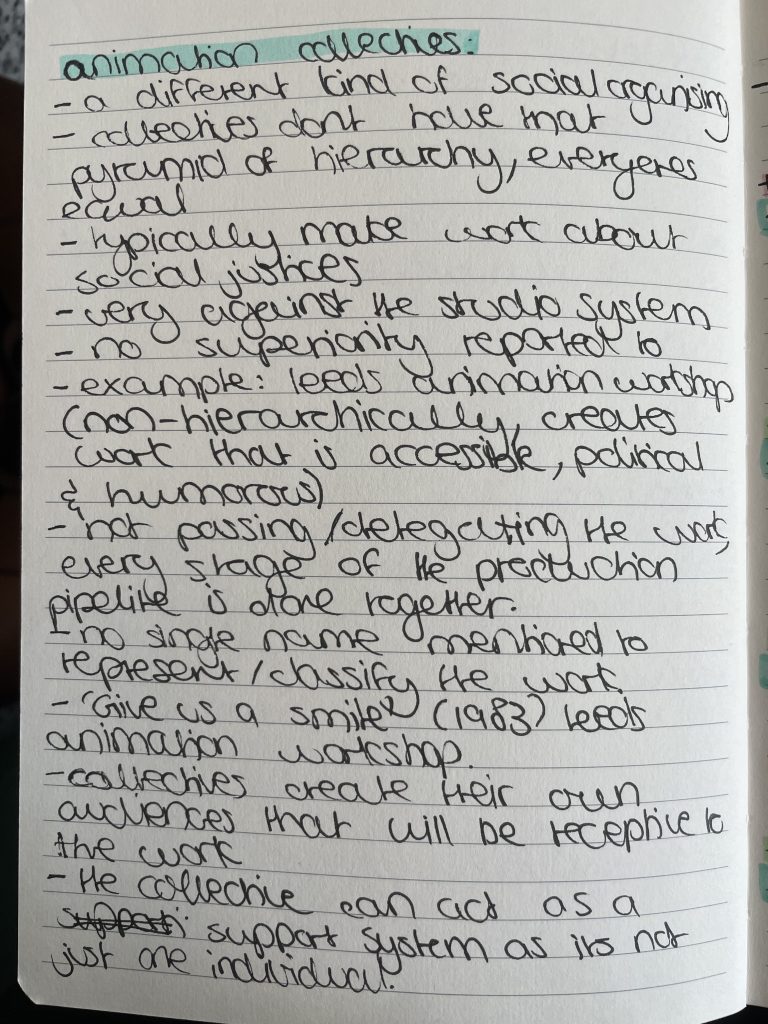 animation collectives:
- a different kind of social organising
- collectives dont have that
pyramid of hierarchy, everyones
equal
- typically make work about
social justices
- very against the studio system
- no superiority reported to
- example: leeds animation workshop
(non-hierarchically, creates
work that is accessible, political
& humorous)
- not passing/delegating the work,
every stage of the production
pipeline is done together.
- no single name mentioned to
represent/classify the work.
- "Give us a smile" (1983) leeds
animation workshop.
- collectives create their own
audiences that will be receptive to
the work
- the collective can act as a
support system as its not
just one individual.